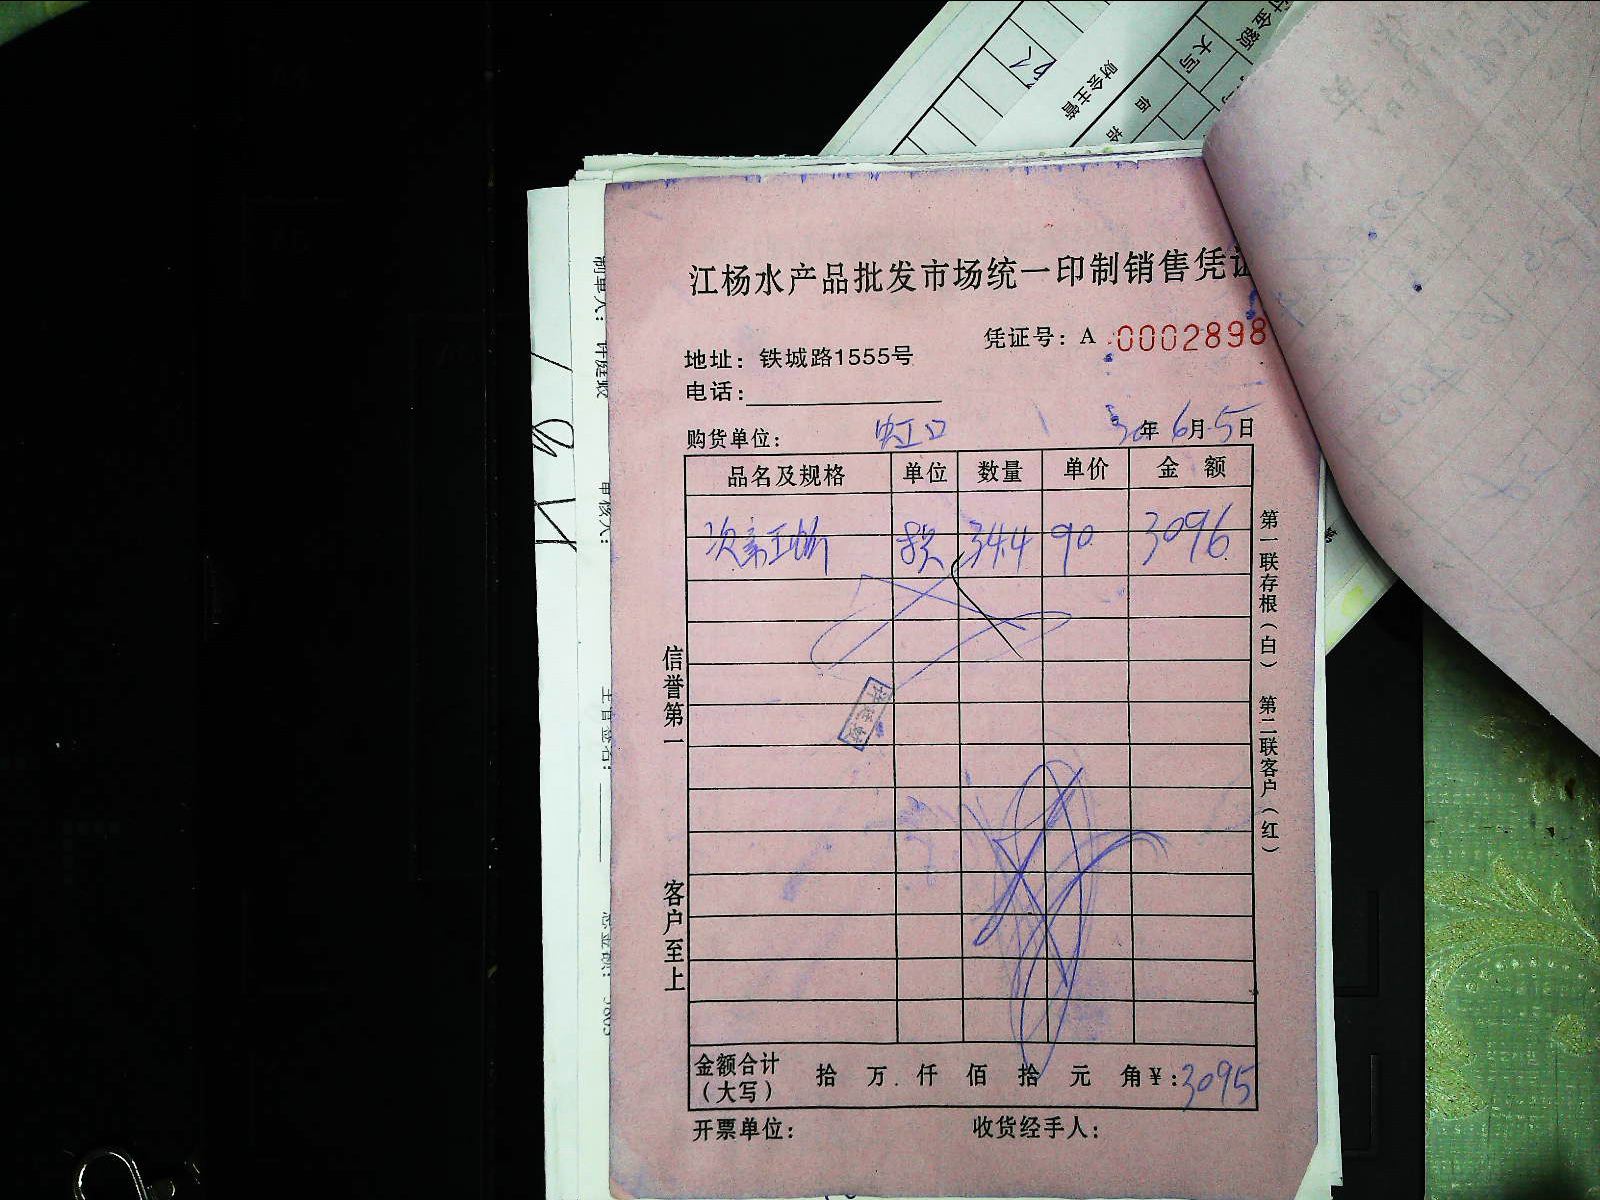 大写
财会主管
佰 拾
江杨水产品批发市场统一印制销售凭证
凭证号：A 0002898
地址：铁城路1555号
电话：
购货单位： 虹口 年 6月 5日
品名及规格 单位 数量 单价 金 额
34.4 90 3096
信誉第一
客户至上
第一联存根（白） 第二联客户（红）
金额合计（大写） 拾 万 仟 佰 拾 元 角 ¥：3095
开票单位： 收货经手人：
制单人： 许庭
审核人：